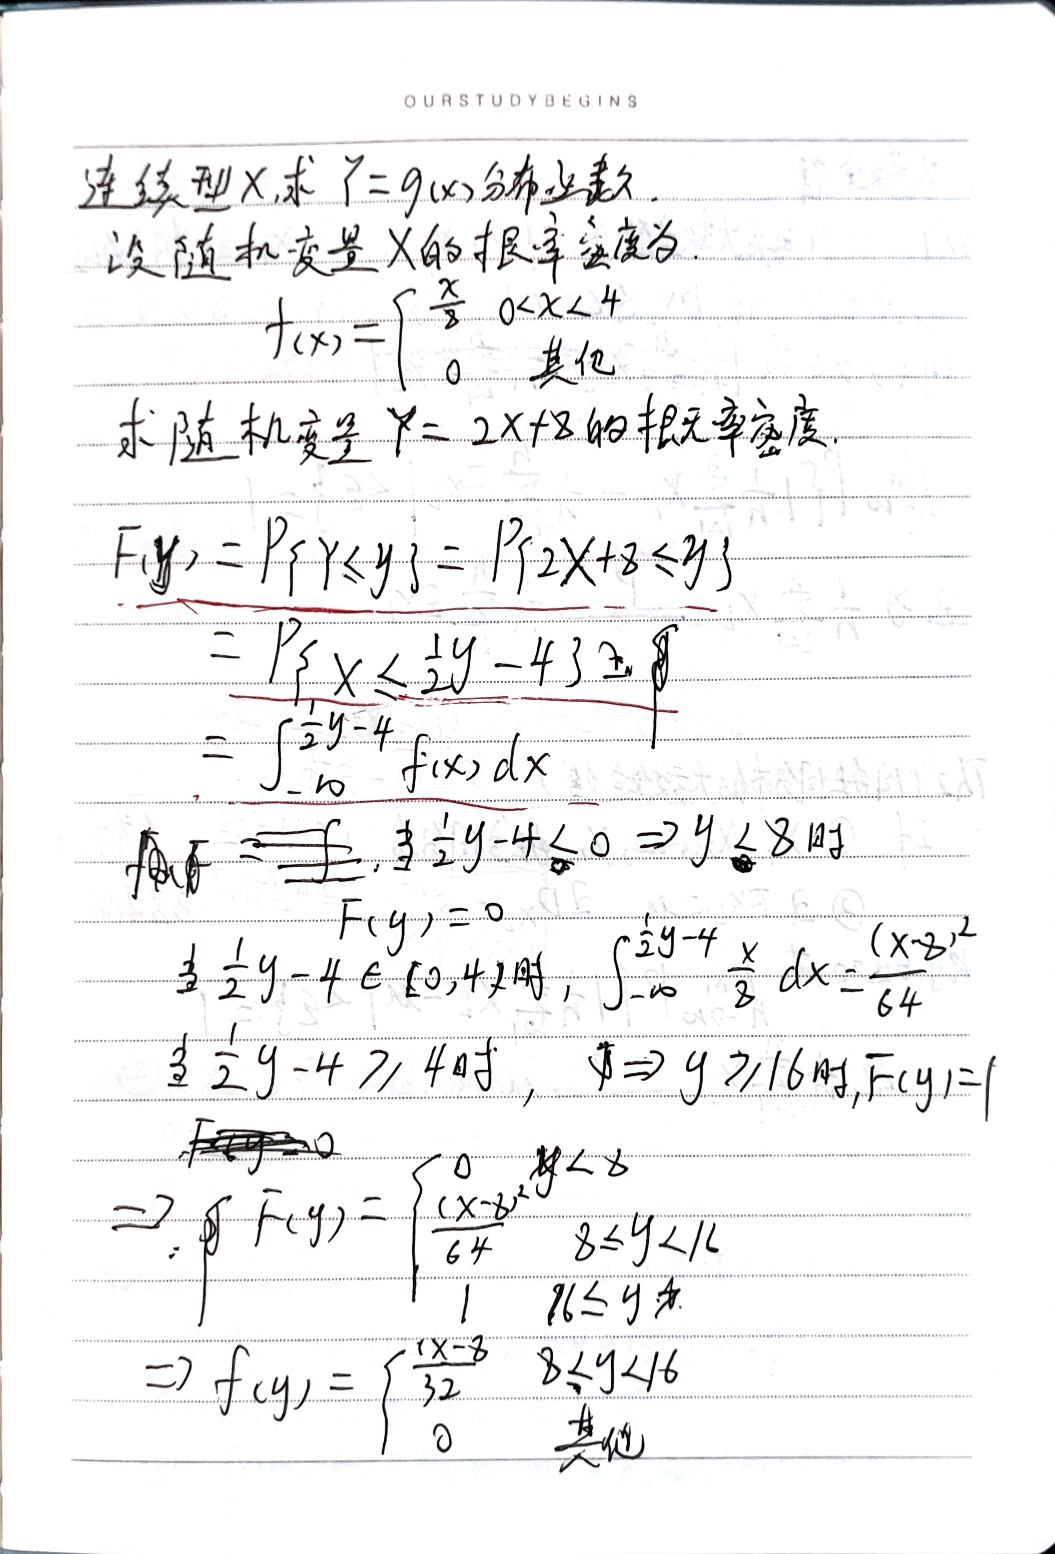 OURSTUDYBEGINS
连续型X,求 Y=g(x)分布函数.
设随机变量X的概率密度为.
f(x)={ x/8 0<x<4
0 其他
求随机变量 Y=2X+8的概率密度.
F(y)=P{Y≤y}=P{2X+8≤y}
=P{X≤½y-4}
=∫_{-∞}^{½y-4} f(x)dx
当½y-4≤0⇒y≤8时
F(y)=0
当½y-4∈[0,4)时,∫_{-∞}^{½y-4} x/8 dx=(x-8)²/64
当½y-4≥4时, ⇒y≥16时,F(y)=1
⇒ F(y)={ 0 y<8
(x-8)²/64 8≤y<16
1 16≤y
⇒f(y)={ (x-8/32 8≤y<16
0 其他